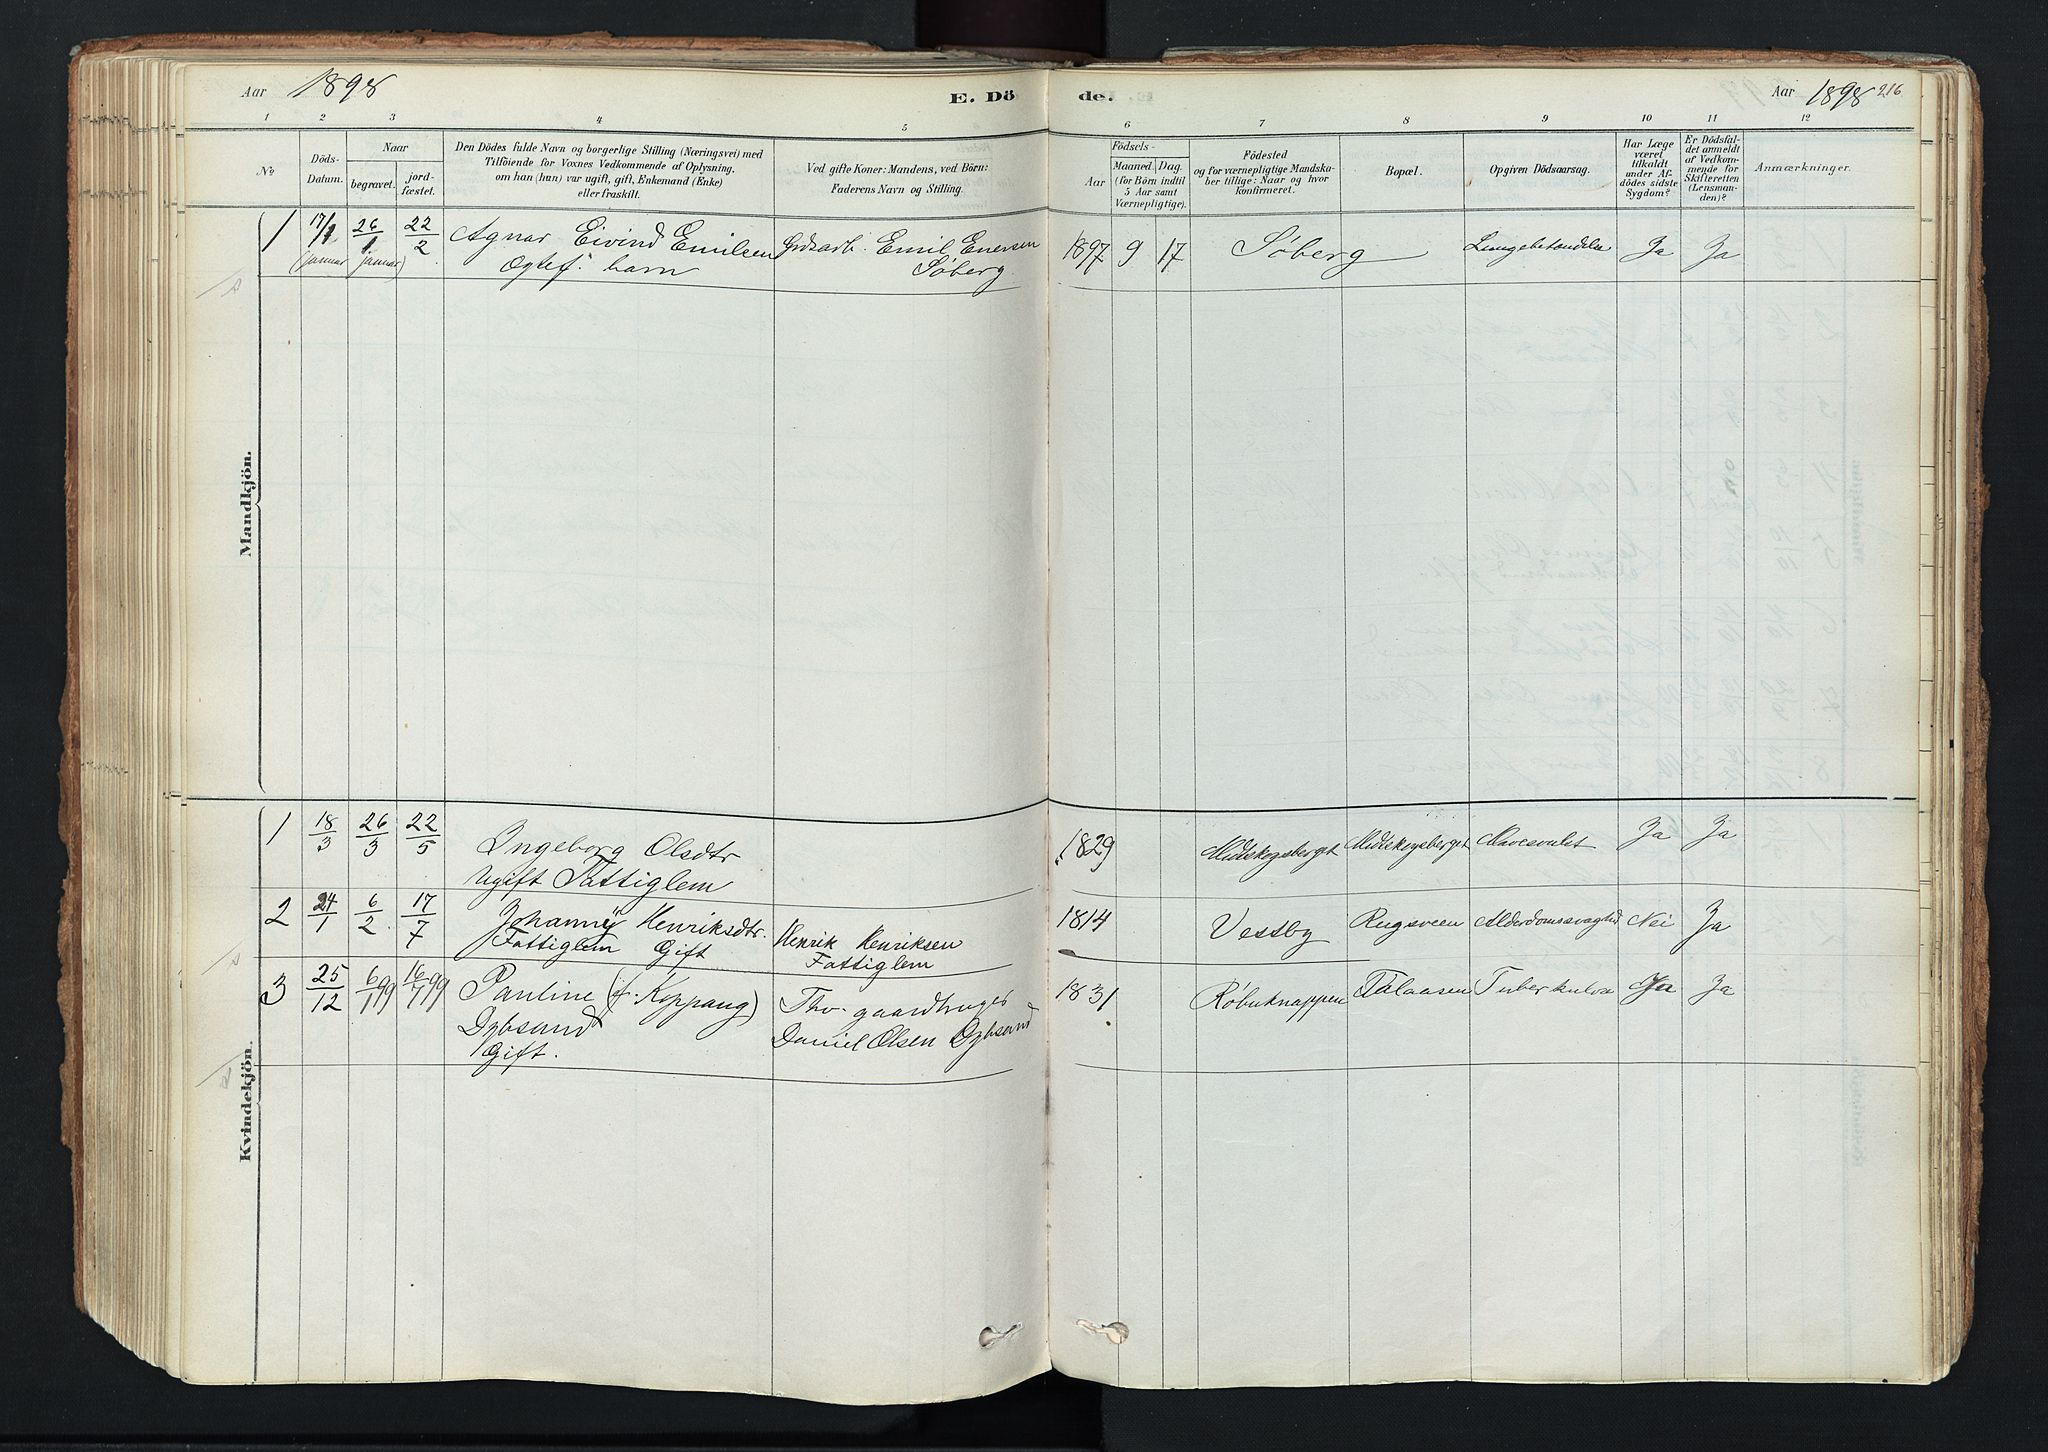 Aar 1898
E. Dö de.
Aar 1898 216
1 2 3 4 5 6 7 8 9 10 11 12
No
Döds-Datum.
Naar
begravet.
jord-fæstet.
Den Dödes fulde Navn og borgerlige Stilling (Næringsvei) med
Tilföiende for Voxnes Vedkommende af Oplysning.
om han (hun) var ugift, gift, Enkemand (Enke)
eller fraskilt.
Ved gifte Koner: Mandens, ved Börn:
Faderens Navn og Stilling.
Födsels-
Aar
Maaned. Dag.
(for Börn indtil
5 Aar samt
Værnepligtige).
Födested
og for værnepligtige Mandska-
ber tillige: Naar og hvor
konfirmeret.
Bopæl.
Opgiven Dödsaarsag.
Har Læge
været
tilkaldt
under Af-
dödes sidste
Sygdom?
Er Dödsfal-
det anmeldt
af Vedkom-
mende for
Skifteretten
(Lensman-
den)?
Anmærkninger.
Mandkjön.
1 17/1 26/1 22/2 Agnar Eivind Emilsen Jordarb. Emil Enersen 1897 9 17 Söberg Lungebetændelse Ja Ja
(januar januar) Ogtef. barn Söberg.
Kvindekjön.
1 18/3 26/3 22/5 Ingeborg Olsdtr 1829 Midtskogsberget Midtskogsberget Mavesvulst Ja Ja
Ugift Fattiglem
2 24/1 6/2 17/7 Johanne Henriksdtr. Henrik Henriksen 1814 Vestby Rugsveen Alderdomssvaghed Nei Ja
Fattiglem Gift Fattiglem
3 25/12 6/1 99 16/7 99 Pauline (f. Koppang) Thv. gaardbruger 1831 Röbuknappen Talaasen Tuberkulose Ja Ja
Dybsand Daniel Olsen Dybsand
Gift.